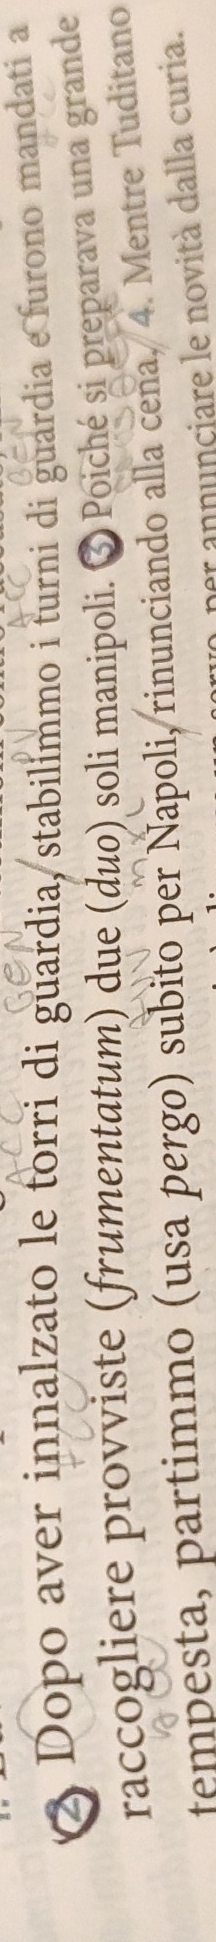 2 Dopo aver innalzato le torri di guardia, stabilimmo i turni di guardia e furono mandati a
raccogliere provviste (frumentatum) due (duo) soli manipoli. 3 Poiché si preparava una grande
tempesta, partimmo (usa pergo) subito per Napoli, rinunciando alla cena. 4. Mentre Tuditano
per annunciare le novità dalla curia.